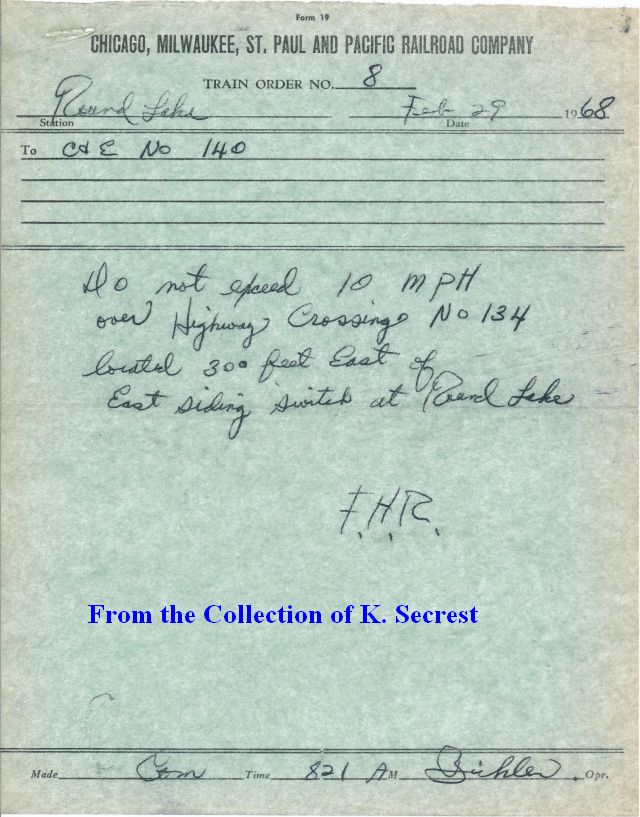 Form 19
CHICAGO, MILWAUKEE, ST. PAUL AND PACIFIC RAILROAD COMPANY
TRAIN ORDER NO. 8
Round Lake Feb 29 1968
Station Date
To C&E No 140
Do not exceed 10 MPH
over Highway Crossing No 134
located 300 feet East of
East siding switch at Round Lake
F.H.R.
From the Collection of K. Secrest
Made Com Time 821 AM Bichler Opr.